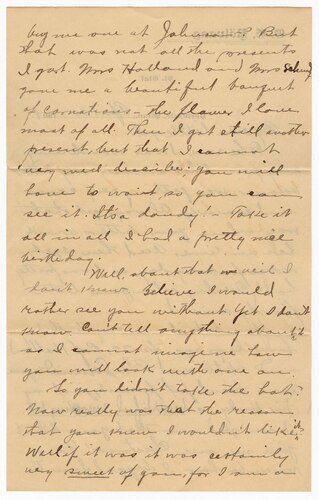 buy me one at Johnson? But
that was not all the presents
I got. Mrs Holland and Mrs
gave me a beautiful bouquet
of carnations - the flower I love
most of all. Then I got still another
present, but that I cannot
very well describe: you will
have to wait, so you can
see it. Its a dandy! - Take it
all in all I had a pretty nice
birthday.
Well, about that veil I
don't know. Believe I would
rather see you without yet I don't
know. Can't tell anything about it
as I cannot imagine how
you will look with one on.
So you didn't take the hat?
Now really was that the reason
that you knew I wouldn't like it?
Well if it was it was certainly
very sweet of you, for I am a